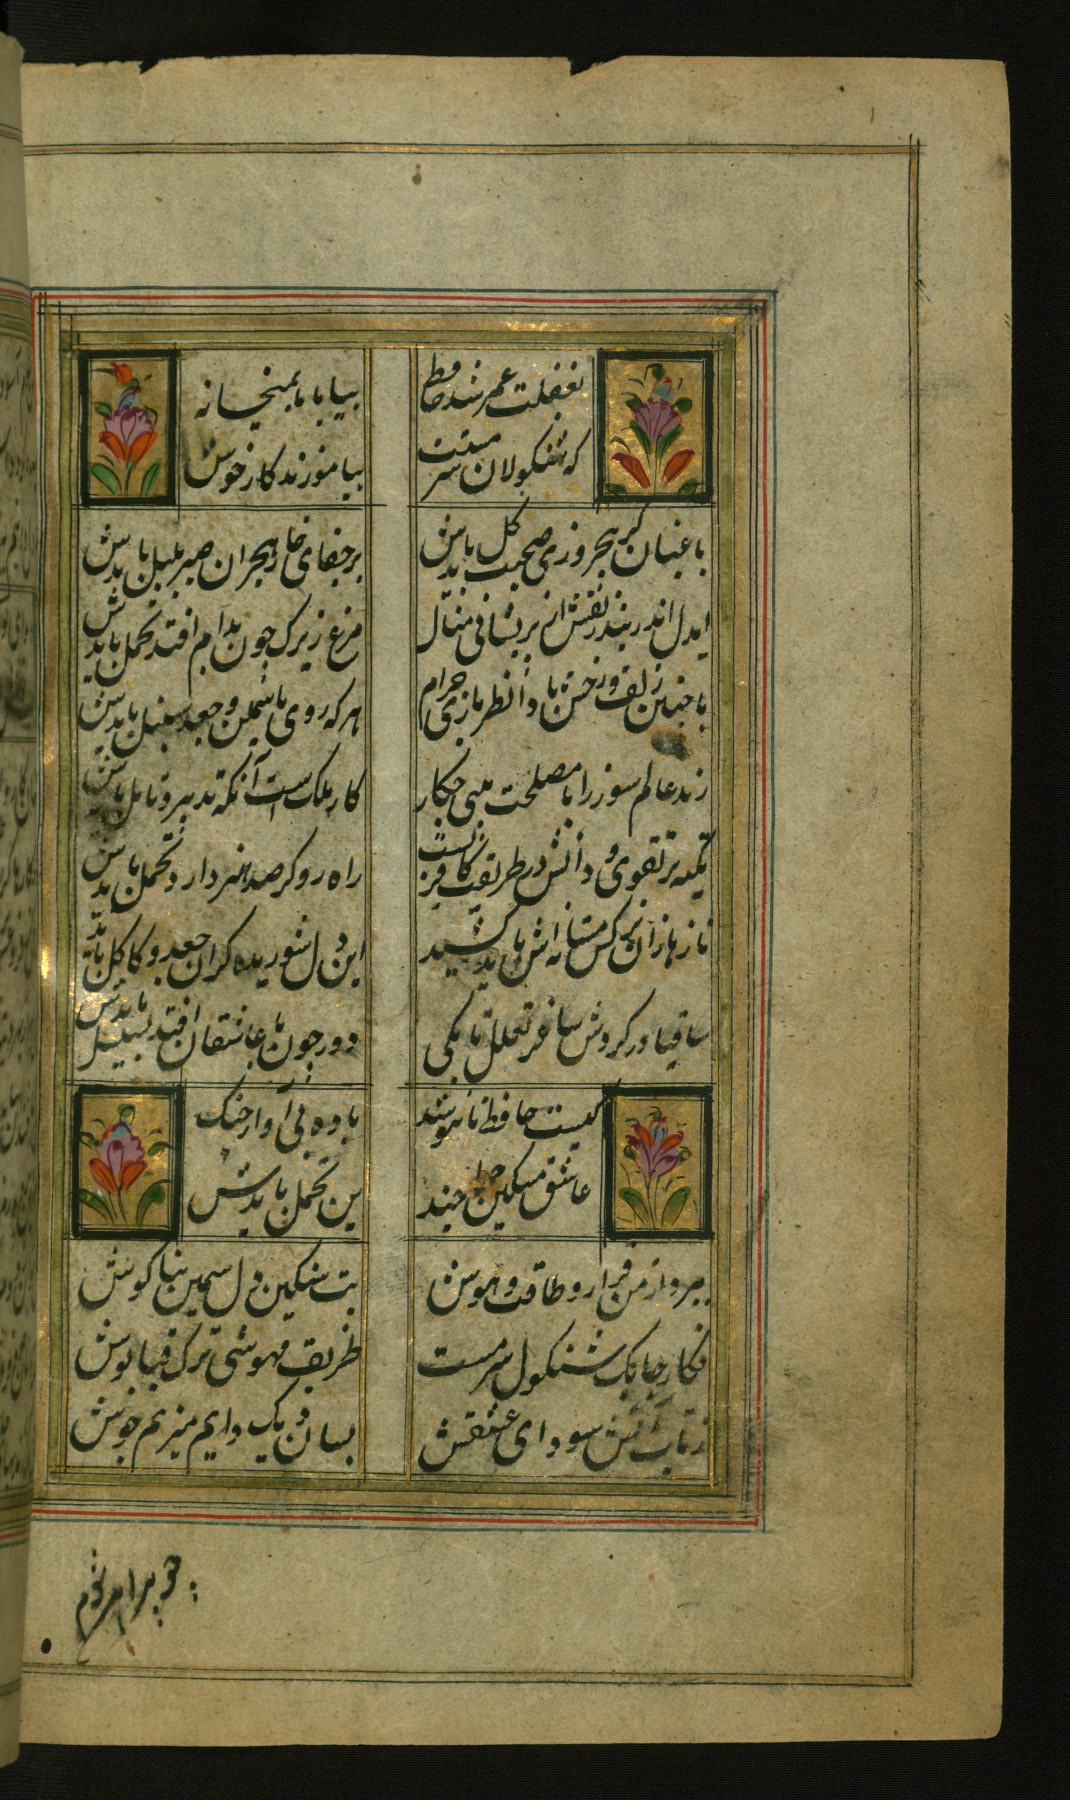 بغفلت عمر شد حافظ
بیا با ما بمیخانه
که شنکولان سرمستت
بیاموزند کار خوش
باغبان کر پنجروزی صحبت کل بایدش
بر جفای خار هجران صبر بلبل بایدش
ایدل اندر بند زلفش از پریشانی منال
مرغ زیرک چون بدام افتد تحمل بایدش
با چنین زلف و رخش بادا نظر بازی حرام
هر که روی یاسمین و جعد سنبل بایدش
رند عالم سوز را با مصلحت بینی چکار
کار ملکست آنکه تدبیر و تامل بایدش
تکیه بر تقوی و دانش در طریقت کافریست
راه رو کر صد هنر دارد تحمل بایدش
نازها زان نرکس مستانه اش باید کشید
این دل شوریده کر آن جعد و کاکل بایدش
ساقیا در کردش ساغر تعلل تا بکی
دور چون با عاشقان افتد تسلسل بایدش
کیست حافظ تا ننوشد
باده بی آواز چنک
عاشق مسکین چرا چندین تحمل بایدش
ببرد از من قرار و طاقت و هوش
بت سنکین دل سیمین بناکوش
نکار چابک شنکول سرمست
ظریف مهوشی ترک قبا پوش
ز تاب آتش سودای عشقش
بسان دیک دایم میزنم جوش
چو پیراهن شوم